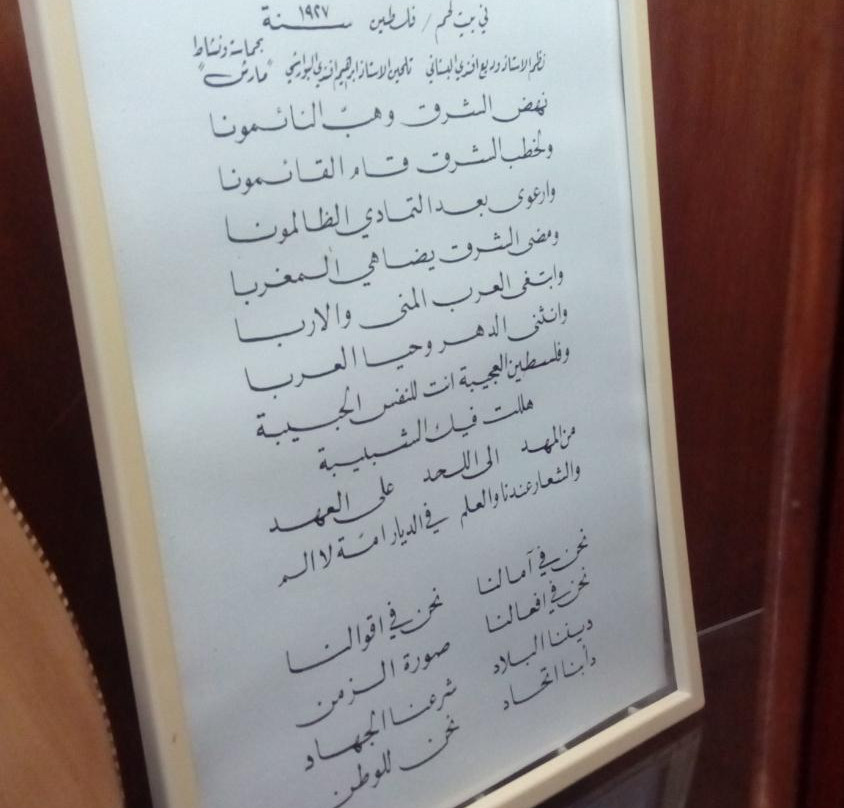 في بيت لحم / فلسطين سنة ١٩٢٧
نظم الاستاذ وديع افندي البستاني تلحين الاستاذ ابرهيم افندي البوارشي "مارش" بحماسة ونشاط
نهض الشرق وهبّ النائمونا
ولخطب الشرق قام القائمونا
وارعوى بعد التمادي الظالمونا
ومضى الشرق يضاهي المغربا
وابتغى العرب المنى والاربا
وانثنى الدهر وحيا العربا
وفلسطين العجيبة انت للنفس الحبيبة
هللت فيك الشبيبة
من المهد الى اللحد على العهد
والشعار عندنا والعلم في الديار امّة لا الم
نحن في آمالنا نحن في اقوالنا
نحن في افعالنا صورة الزمن
ديننا البلاد شرعنا الجهاد
دأبنا اتحاد نحن للوطن